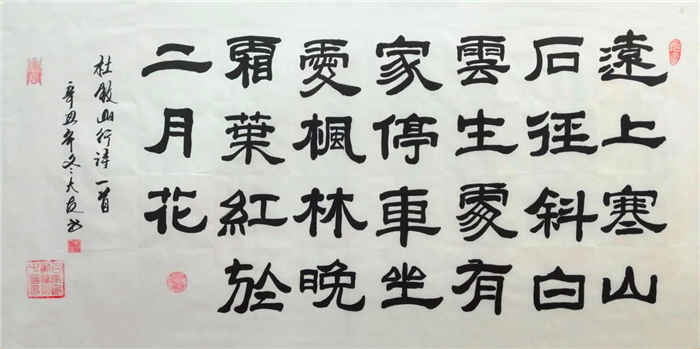 遠上寒山
石径斜白
雲生處有
家停車坐
愛楓林晚
霜葉紅於
二月花
杜牧山行詩一首
辛丑年冬大书